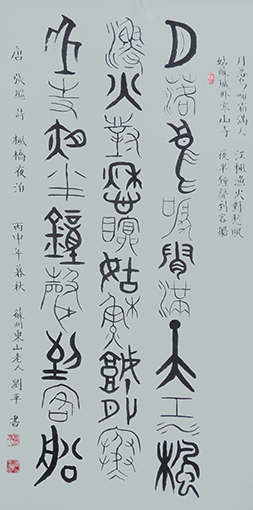 月落烏啼霜滿天 江楓漁火對愁眠
姑蘇城外寒山寺 夜半鐘聲到客船
月落烏啼霜滿天江楓
漁火對愁眠姑蘇城外寒
山寺夜半鐘聲到客船
唐 張繼詩 楓橋夜泊 丙申年暮秋 蘇州東山老人 劉平 書